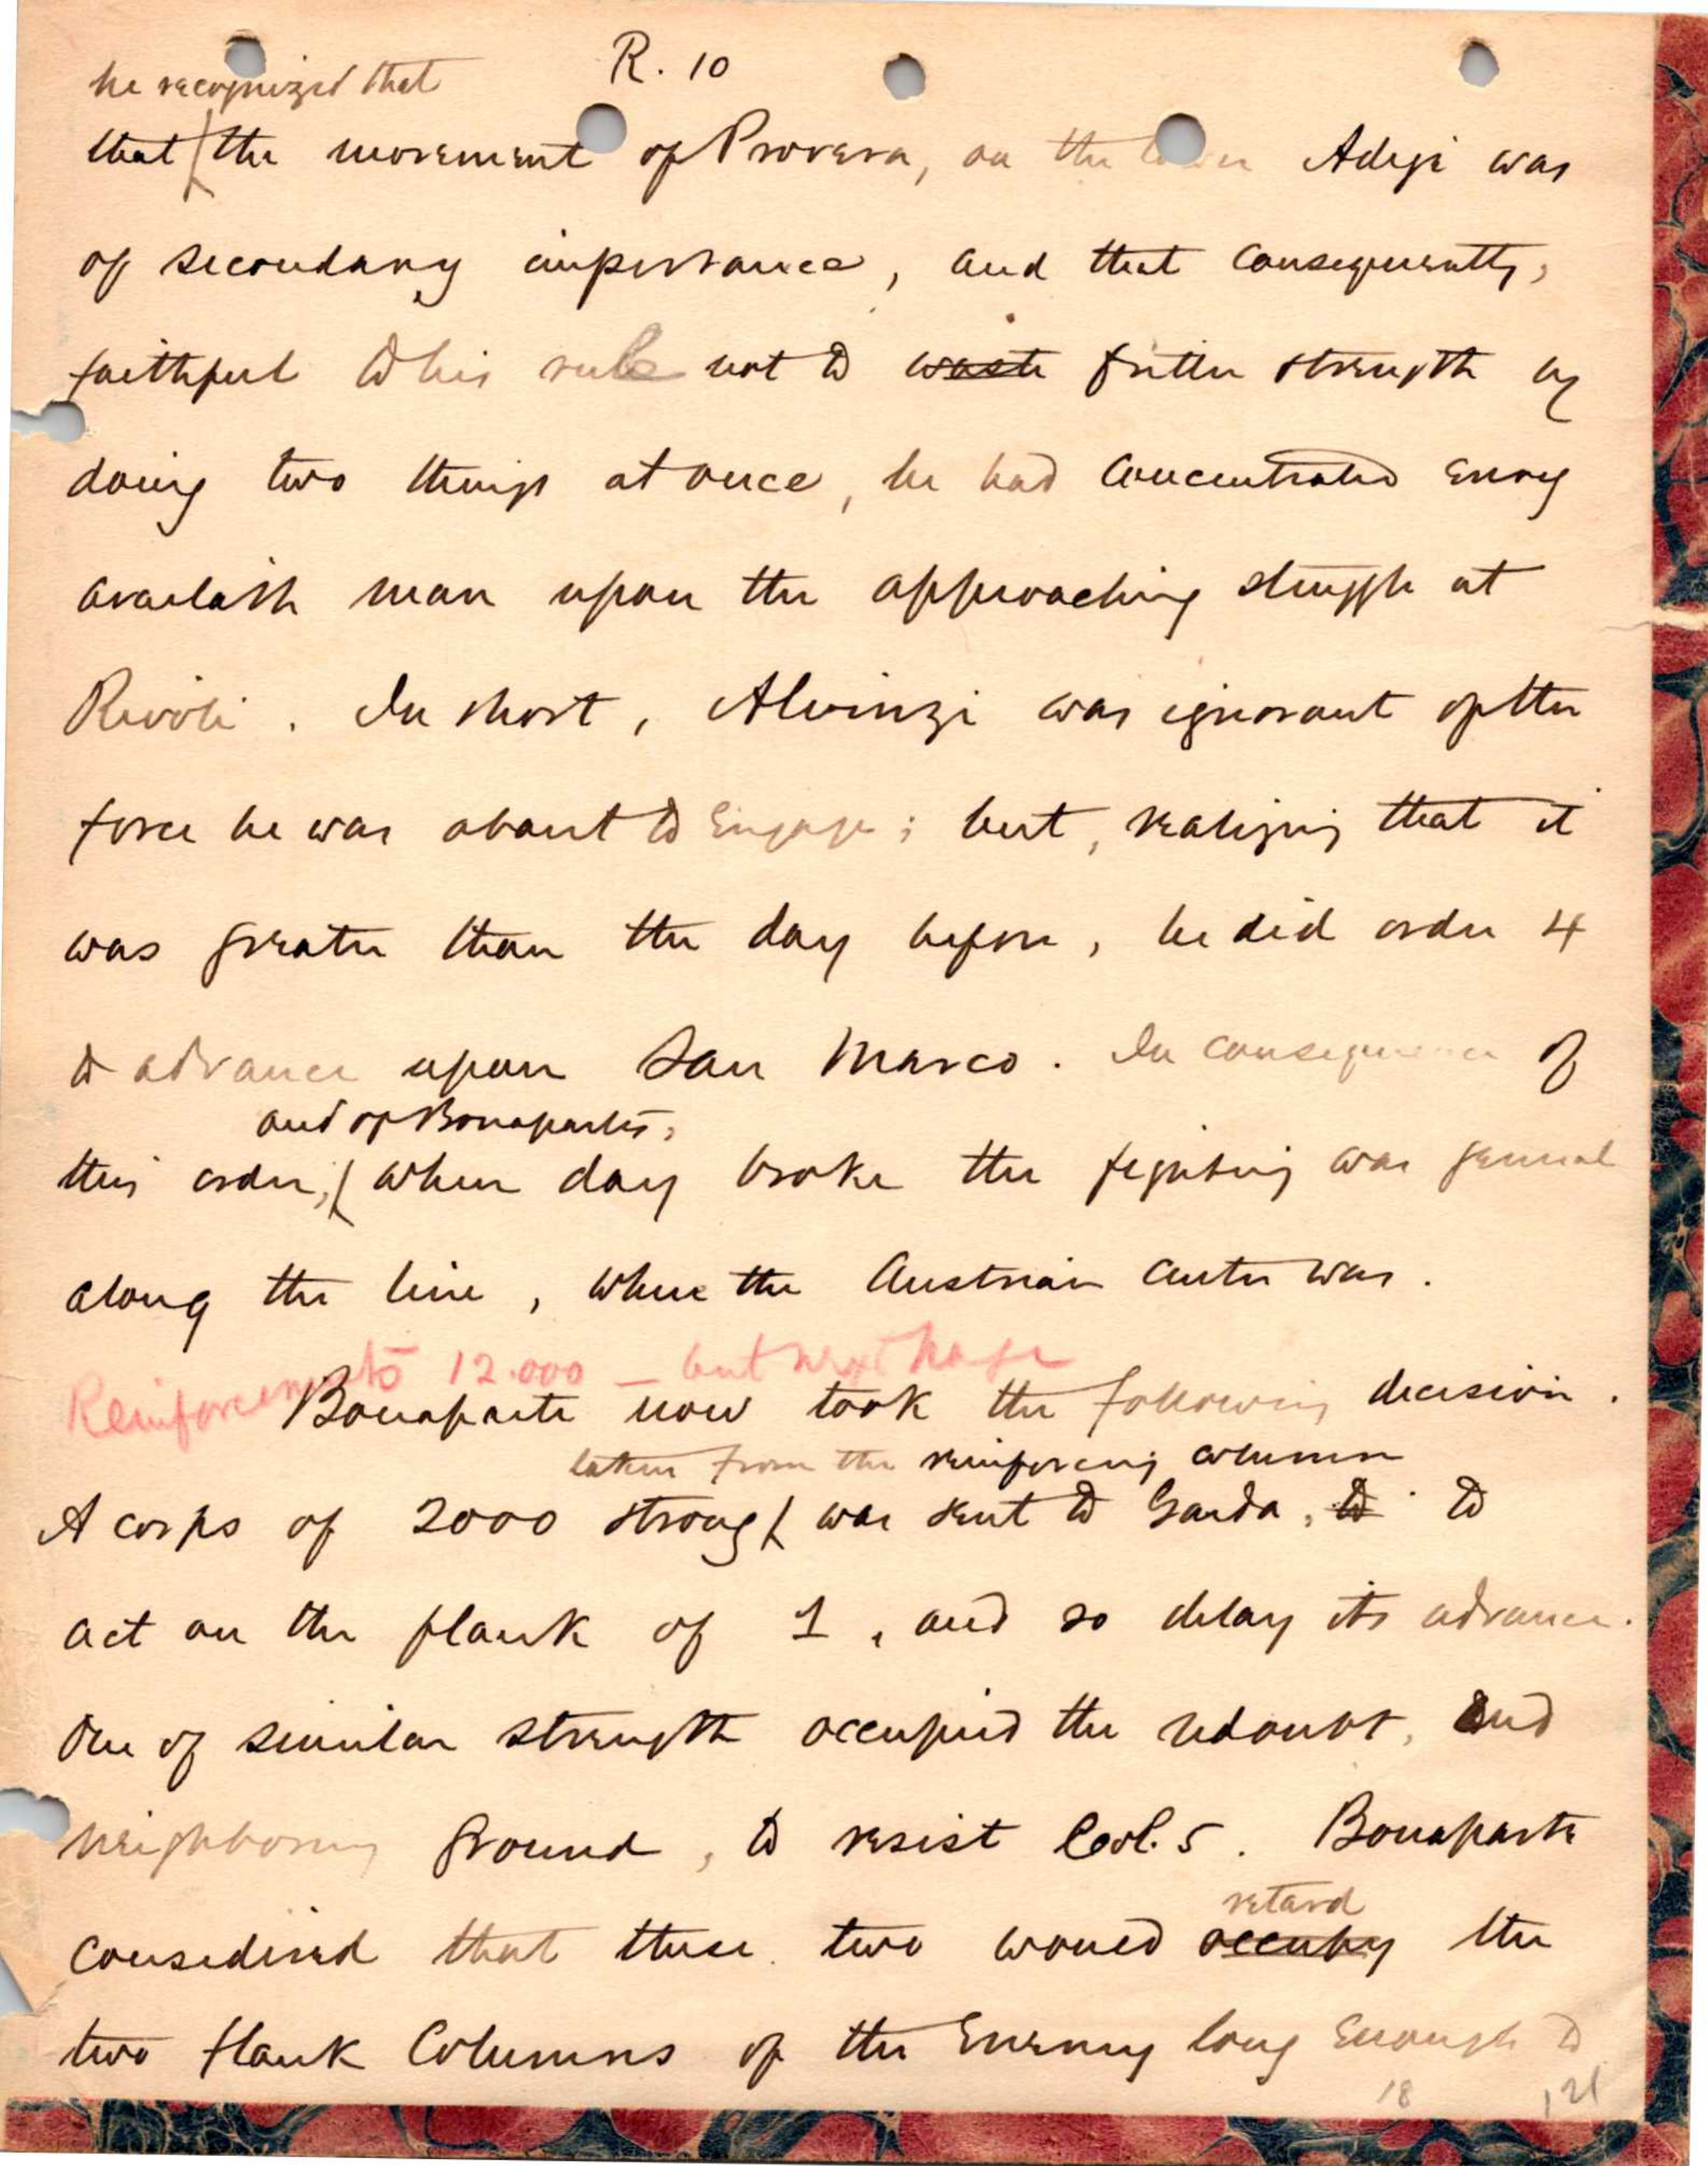 R. 10
he recognized that
that the movement of Provera, on the lower Adige was
of secondary importance, and that consequently,
faithful to his rule not to waste fritter strength by
doing two things at once, he had concentrated every
available man upon the approaching struggle at
Rivoli. In short, Alvinzi was ignorant of the
force he was about to engage; but, realizing that it
was greater than the day before, he did order 4
to advance upon San Marco. In consequence of
and of Bonaparte's,
this order, when day broke the fighting was general
along the line, where the Austrian center was.
Reinforcements 12.000 — but next page
Bonaparte now took the following decision.
taken from the reinforcing column
A corps of 2000 strong was sent to Garda, to to
act on the flank of 1, and so delay its advance.
One of similar strength occupied the redoubt, and
neighboring ground, to resist Col. 5. Bonaparte
retard
considered that these two would occupy the
two flank columns of the Enemy long enough to
18 121